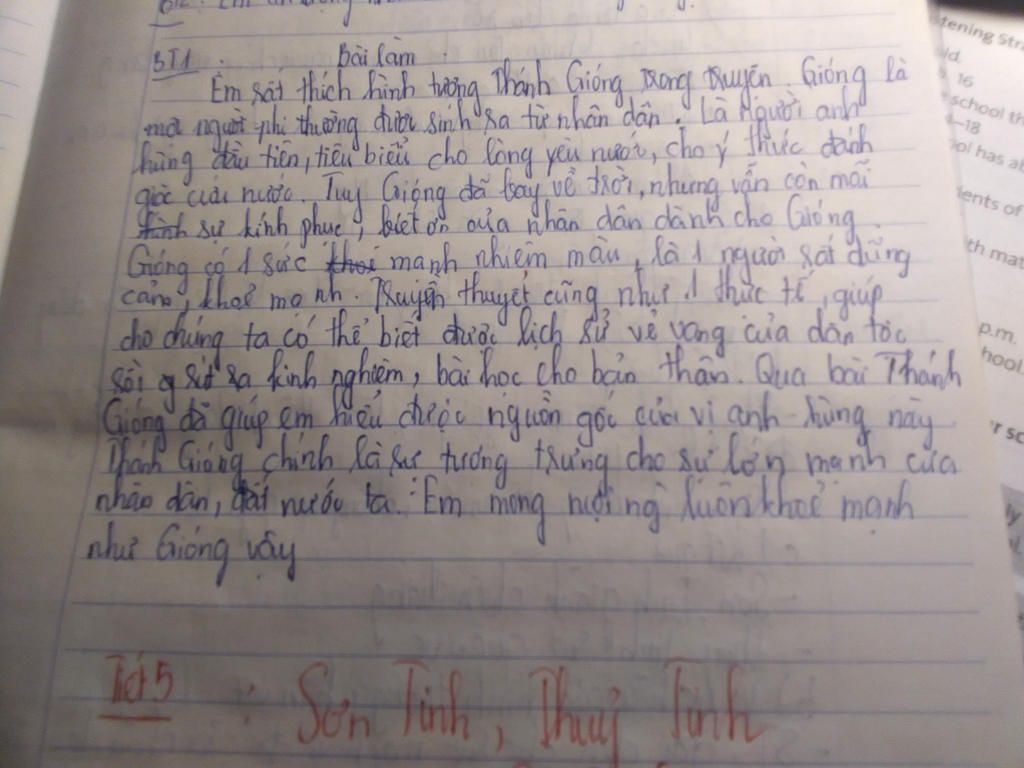 BT1. Bài làm
Em rất thích hình tượng Thánh Gióng trong truyện. Gióng là
một người phi thường được sinh ra từ nhân dân. Là người anh
hùng đầu tiên, tiêu biểu cho lòng yêu nước, cho ý thức đánh
giặc cứu nước. Tuy Gióng đã bay về trời, nhưng vẫn còn mãi
sự kính phục, biết ơn của nhân dân dành cho Gióng.
Gióng có 1 sức mạnh nhiệm màu, là 1 người rất dũng
cảm, khoẻ mạnh. Truyền thuyết cũng như 1 thực tế, giúp
cho chúng ta có thể biết được lịch sử vẻ vang của dân tộc
rồi rút ra kinh nghiệm, bài học cho bản thân. Qua bài Thánh
Gióng đã giúp em hiểu được nguồn gốc của vị anh hùng này.
Thánh Gióng chính là sự tượng trưng cho sự lớn mạnh của
nhân dân, đất nước ta. Em mong luôn khoẻ mạnh
như Gióng vậy
Tiết 5 : Sơn Tinh, Thuỷ Tinh
tening Stra
16
school th
-18
ol has ab
ents of
th mat
p.m.
hool.
r sc